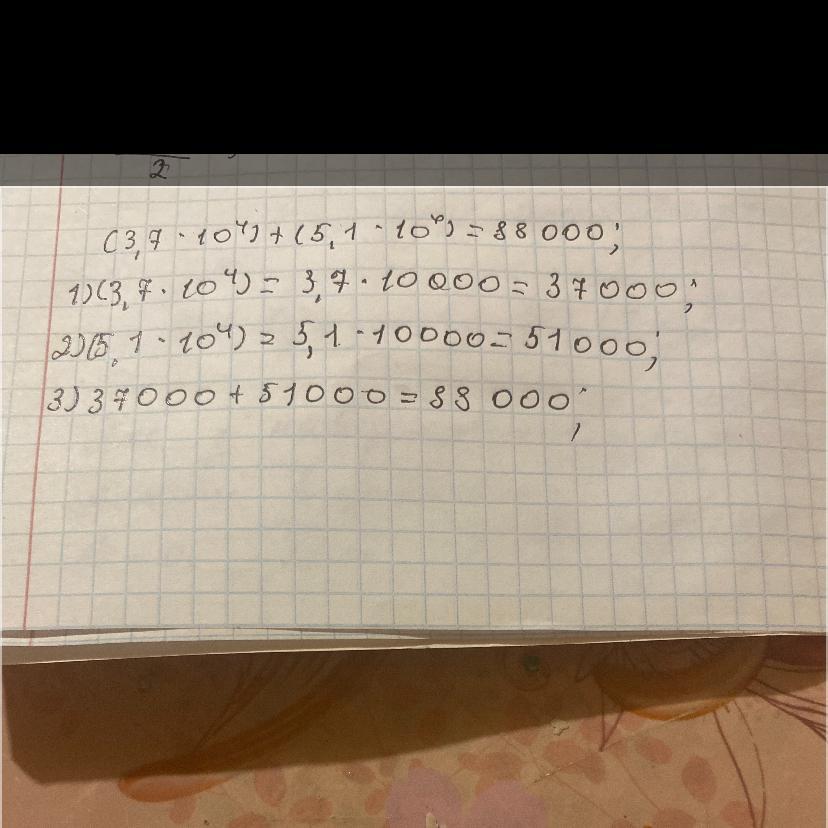 2
(3,7 · 10⁴) + (5,1 · 10⁴) = 88 000;
1) (3,7 · 10⁴) = 3,7 · 10 000 = 37 000;
2) (5,1 · 10⁴) = 5,1 · 10000 = 51 000;
3) 37000 + 51000 = 88 000;